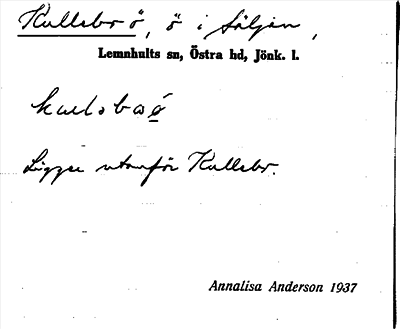 Kullebo ö, ö i Säljen,
Lemnhults sn, Östra hd, Jönk. l.
Ligger utanför Kullebo.
Annalisa Anderson 1937